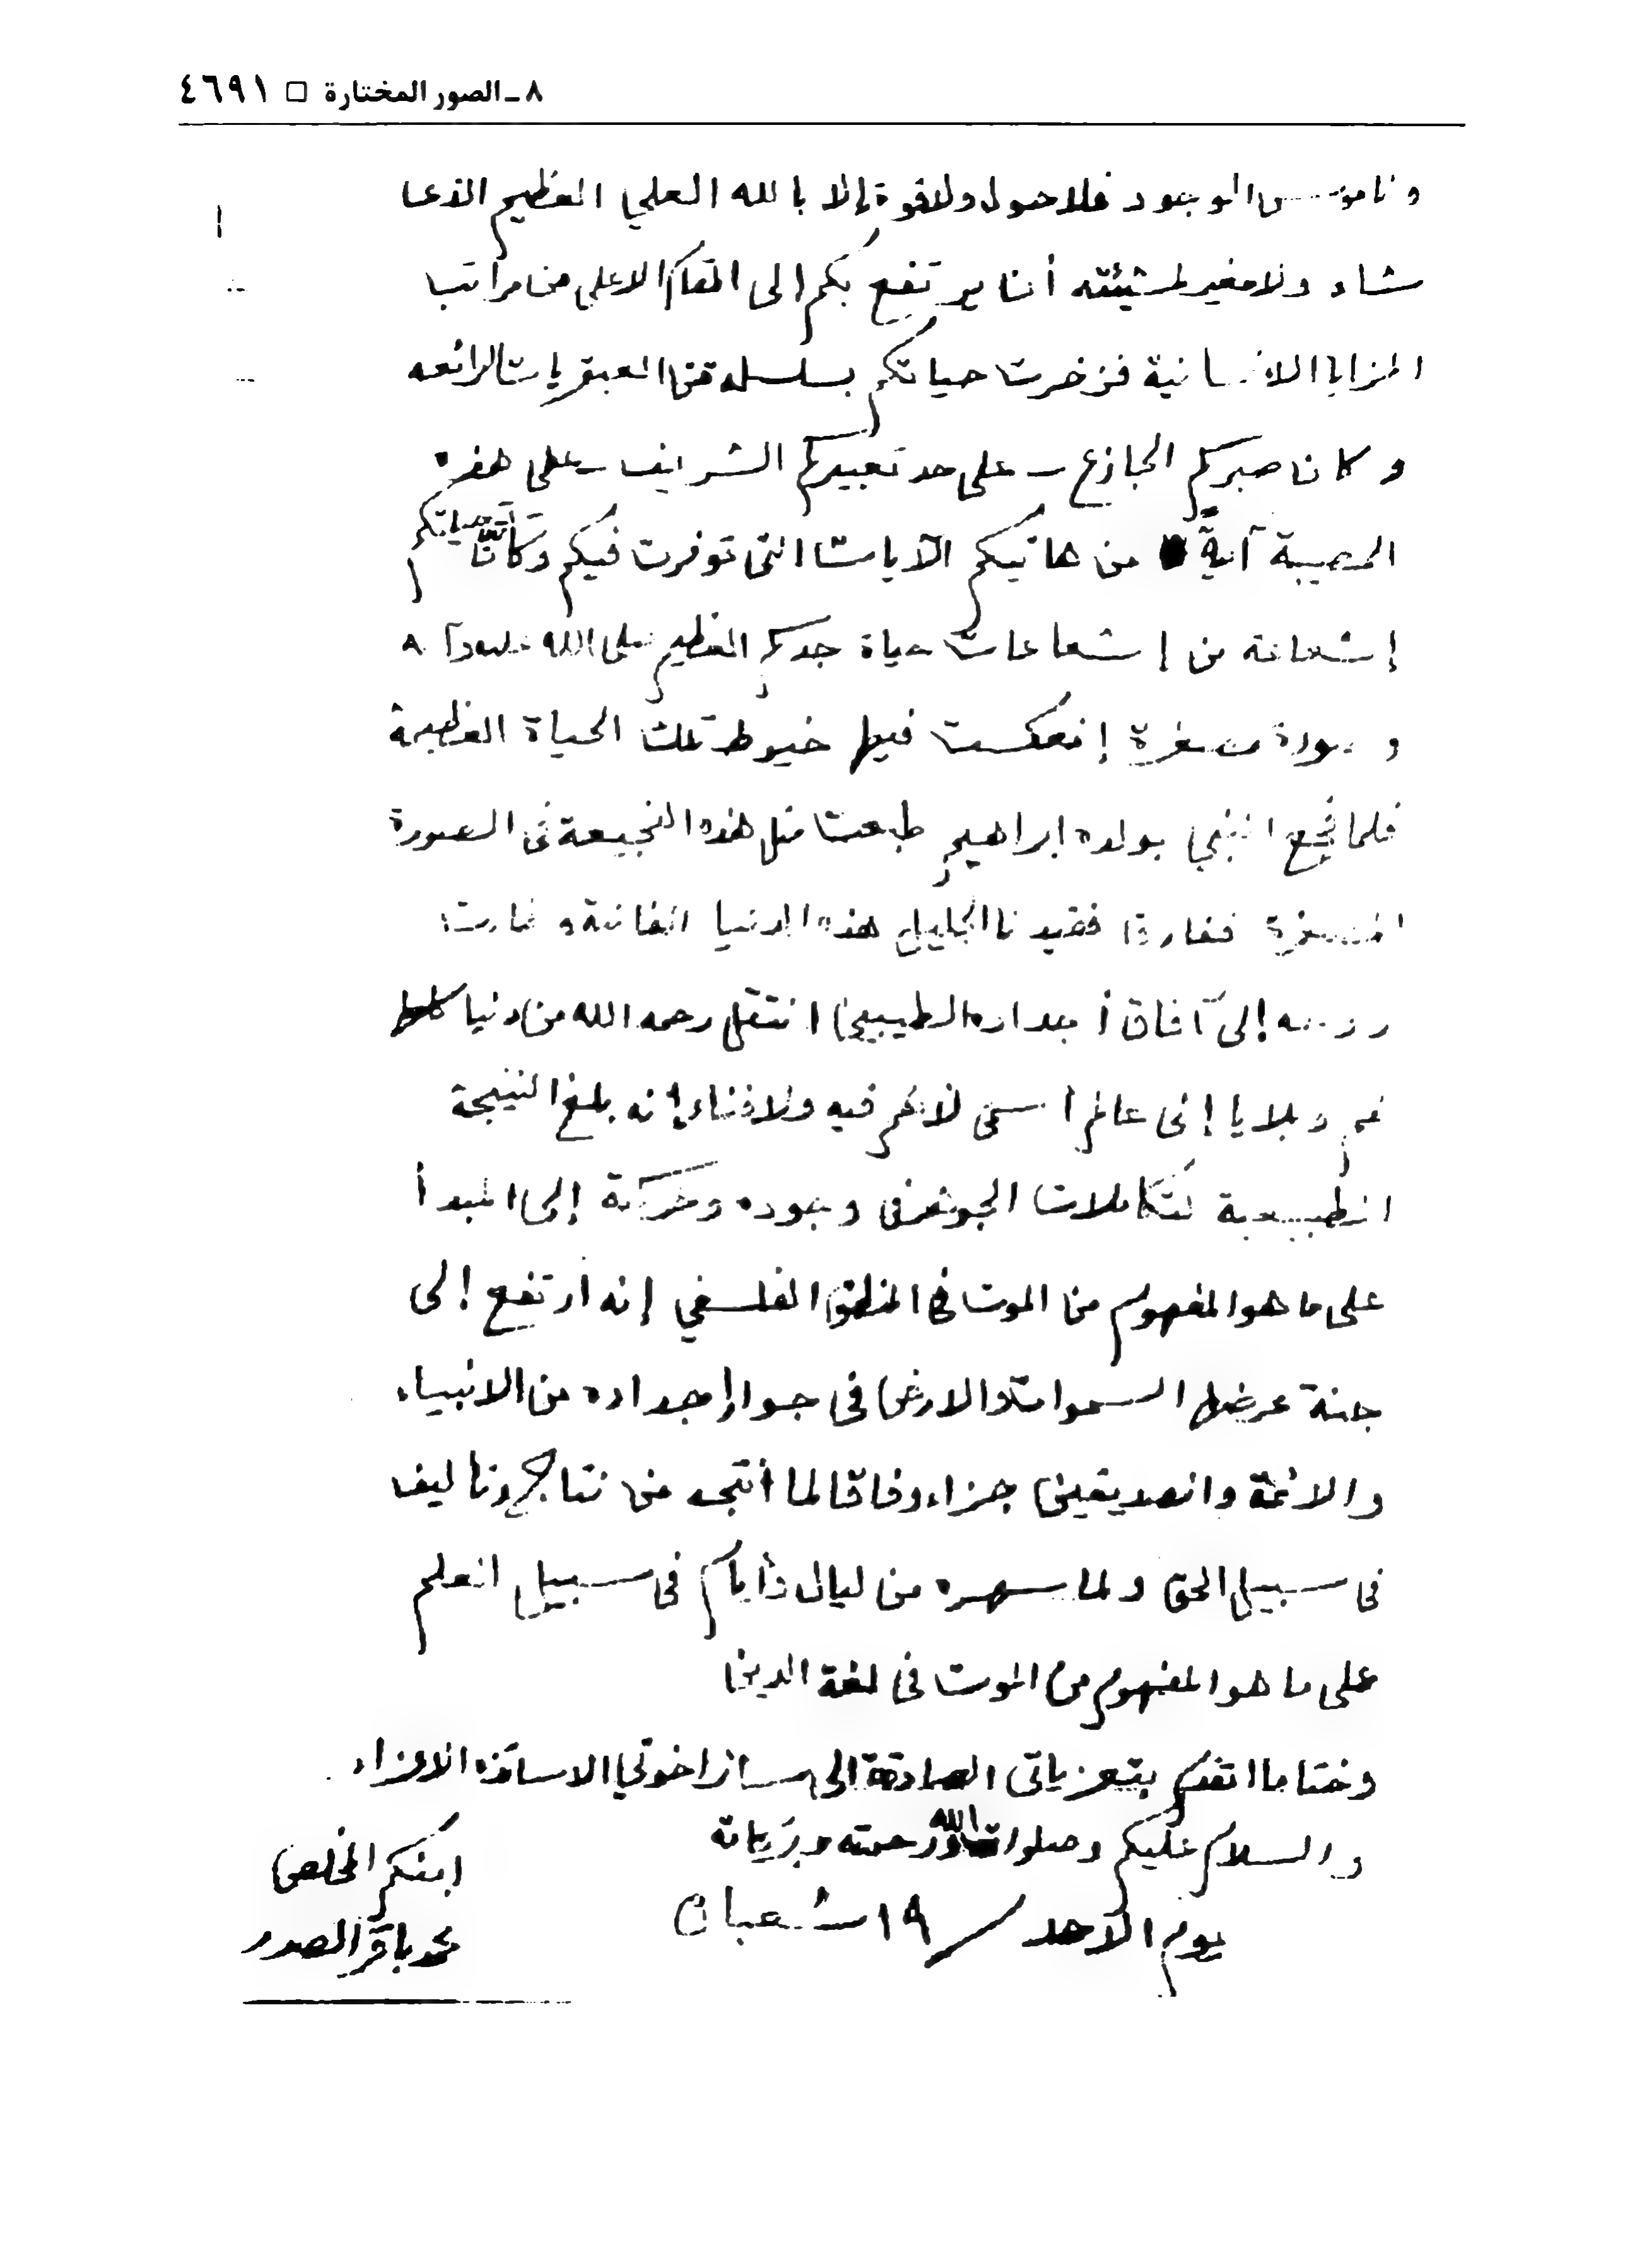 ٨ ـ الصور المختارة □ ٤٦٩١
الوجود فلا حول ولا قوة إلا بالله العلي العظيم الذي
شاء ولا مغير لمشيئته أن يرتفع بكم الى المقام الاعلى من مراتب
المزايا الانسانية فزخرت حياتكم بسلسلة من العبقريات الرائعه
وكان صبركم الجازع ـ على حد تعبيركم الشريف ـ على هذه
المصيبة آيةً من هاتيكم الآيات التى توفرت فيكم وكأنّ حياتكم
إشعاعة من إشعاعات حياة جدكم العظيم صلى الله عليه وآله
وصورة مصغرة إنعكست فيها خيوط تلك الحياة العظيمة
فلما فجع النبي بولده ابراهيم طبعت مثل هذه الفجيعة فى الصورة
المصغرة ففارق فقيدنا الجليل هذه الدنيا الفانية وطارت
روحه إلى آفاق أجداده الطيبين انتقل رحمه الله من دنيا كلها
غم وبلايا إلى عالم أسمى لا غم فيه ولا فناء إنه بلغ النتيجة
الطبيعية لتكاملات الجوهر فى وجوده وحركة إلى المبدأ
على ما هو المفهوم من الموت في المنطق الفلسفي إنه أرتفع إلى
جنة عرضها السموات والارض فى جوار إجداده من الانبياء
والائمة والصديقين جزاء وفاقا لما أنتجه من نتاج وتاليف
فى سبيل الحق ولما سهره من ليال وأيام فى سبيل العلم
على ما هو المفهوم من الموت فى لغة الدين
وختاما اتقدم بتعزياتى الصادقة الى سائر اخوتي الاساتذه الاعزاء
والسلام عليكم وصلوات الله ورحمته وبركاته
ابنكم المخلص
يوم الآحد / ١٩ شعبان
محمد باقر الصدر